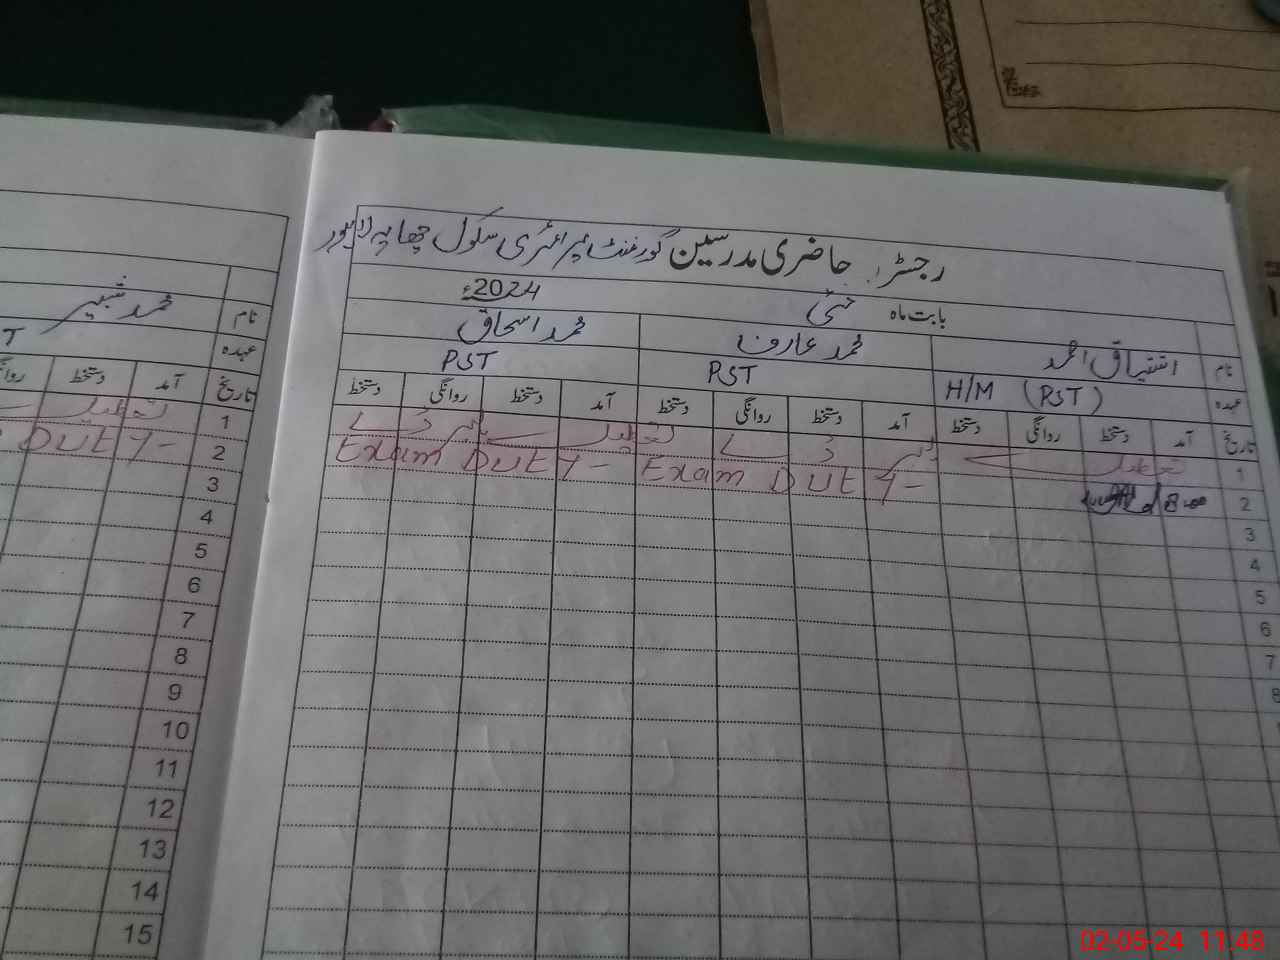 رجسٹر حاضری مدرسین گورنمنٹ پرائمری سکول چھاپہ لاہور
بابت ماہ مئی 2024ء
نام اشتیاق احمد محمد عارف محمد اسحاق
عہدہ H/M (PST) PST PST
تاریخ آمد دستخط روانگی دستخط آمد دستخط روانگی دستخط آمد دستخط روانگی دستخط
1 تعطیل لیبر ڈے تعطیل لیبر ڈے
2 8 Exam DUTY- Exam DUTY-
3
4
5
6
7
8
نام محمد شبیر
عہدہ T
تاریخ آمد دستخط
1 تعطیل
2 DUTY-
3
4
5
6
7
8
9
10
11
12
13
14
15
02-05-24 11:48